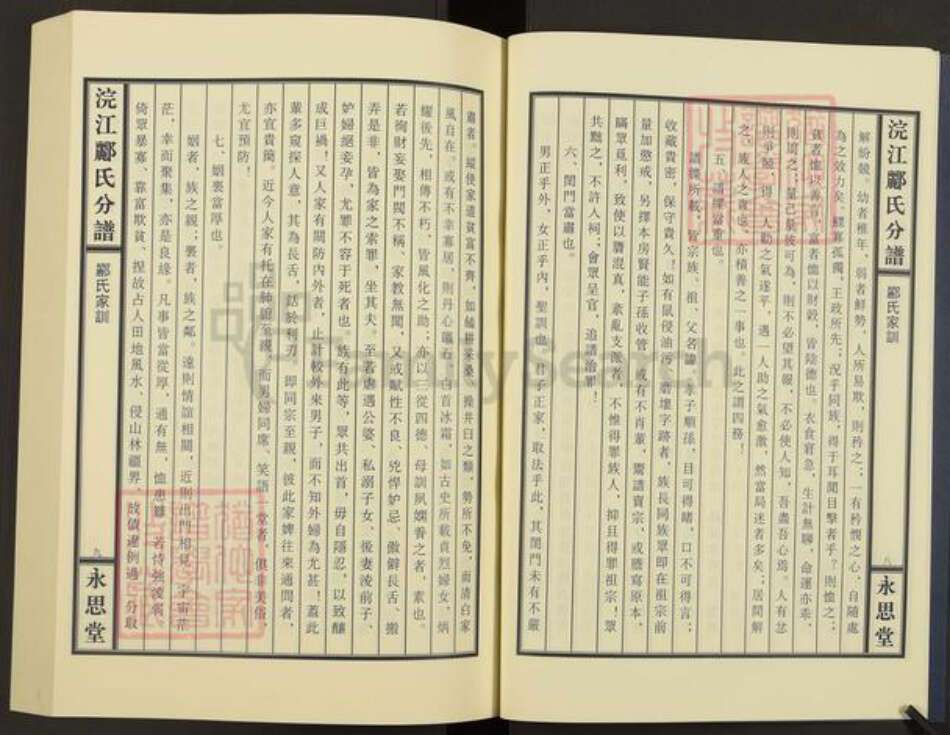 浣江酈氏分譜
酈氏家訓
八
永思堂
解紛競。幼者稚年、弱者鮮勢，人所易欺，則矜之；一有矜憫之心，自隨處
為之效力矣。鰥寡孤獨，王政所先；況乎同族，得于耳聞目擊者乎？則恤之；
貧者恤以善言，富者恤以財穀，皆陰德也。衣食窘急，生計無聊，命運亦乖，
則周之；量己量彼可為，則不必望其報，不必使人知，吾盡吾心焉。人有忿
則爭競，得一人勸之氣遂平，遇一人助之氣愈激，然當局迷者多矣；居間解
之，族人之責也。亦積善之一事也。此之謂四務！
五、譜牒當重也。
譜牒所載，皆宗族、祖、父名諱，孝子順孫，目可得睹，口不可得言；
收藏貴密，保守貴久！如有鼠侵油污、磨壞字跡者，族長同族眾即在祖宗前
量加懲戒，另擇本房賢能子孫收管；或有不肖輩，鬻譜賣宗，或謄寫原本，
瞞眾覓利，致使以贗混真，紊亂支派者，不惟得罪族人，抑且得罪祖宗！眾
共黜之，不許入祠；會眾呈官，追譜治罪！
六、閨門當肅也。
男正乎外，女正乎內，聖訓也。君子正家，取法乎此，其閨門未有不嚴
浣江酈氏分譜
酈氏家訓
九
永思堂
肅者。縱使家道貧富不齊，如饁耕采桑、操井臼之類，勢所不免，而清白家
風自在。或有不幸寡居，則丹心礪石，白首冰霜，如古史所載貞烈婦女，炳
耀後先，相傳不朽，皆風化之助；亦以三從四德、母訓夙嫻養之者，素也。
若徇財妄娶門閥不稱、家教無聞，又或賦性不良、兇悍妒忌、傲僻長舌、搬
弄是非，皆為家之索罪，坐其夫。至若虐遇公婆、私溺子女、後妻淩前子、
妒婦絕妾孕，尤罪不容于死者也，族有此等，眾共出首，毋自隱忍，以致釀
成巨禍！又人家有關防內外者，止計較外來男子，而不知外婦為尤甚！蓋此
輩多窺探人意，其為長舌，話於利刃，即同宗至親，彼此家婢往來通問者，
亦宜貴簡。近今人家有托在肺腑至親，而男婦同席、笑語一堂者，俱非美俗，
尤宜預防！
七、姻裏當厚也。
姻者，族之親；裏者，族之鄰。遠則情誼相關，近則出門相見，宇宙茫
茫，幸而聚集，亦是良緣。凡事皆當從厚，通有無，恤患難。若恃強淩弱、
倚眾暴寡、靠富欺貧、捏故占人田地風水、侵山林疆界、放債違例過分取